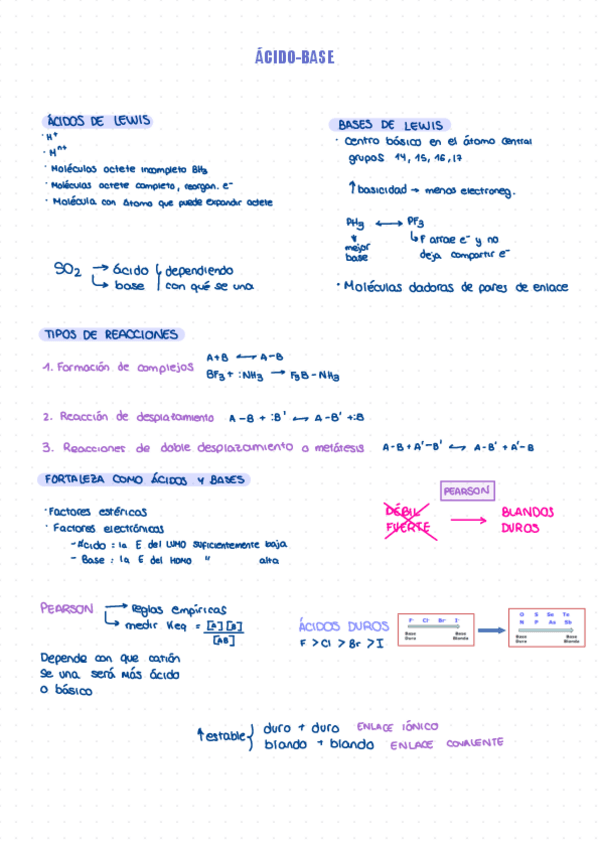 ÁCIDO-BASE
ÁCIDOS DE LEWIS
· H⁺
· Mⁿ⁺
· Moléculas octete incompleto BH₃
· Moléculas octete completo, reorgan. e⁻
· Molécula con átomo que puede expandir octete
SO₂ → ácido dependiendo
↳ base con qué se una
BASES DE LEWIS
· Centro básico en el átomo central
grupos 14, 15, 16, 17
↑ basicidad → menos electroneg.
PH₃ ⟷ PF₃
↓ mejor base
↳ F atrae e⁻ y no
deja compartir e⁻
· Moléculas dadoras de pares de enlace
TIPOS DE REACCIONES
1. Formación de complejos
A+B ⟷ A-B
BF₃ + :NH₃ → F₃B-NH₃
2. Reacción de desplazamiento A-B + :B' ⟷ A-B' + :B
3. Reacciones de doble desplazamiento o metátesis A-B + A'-B' ⟷ A-B' + A'-B
FORTALEZA COMO ÁCIDOS Y BASES
· Factores estéricos
· Factores electrónicos
- Ácido : la E del LUMO suficientemente baja
- Base : la E del HOMO " alta
PEARSON
DÉBIL → BLANDOS
FUERTE DUROS
PEARSON → Reglas empíricas
↳ medir Keq = [A][B]
[AB]
Depende con que catión
se una será más ácido
o básico
ÁCIDOS DUROS
F > Cl > Br > I
F⁻ Cl⁻ Br⁻ I⁻
Base Dura Base Blanda
O S Se Te
N P As Sb
Base Dura Base Blanda
↑ estable { duro + duro ENLACE IÓNICO
blando + blando ENLACE COVALENTE